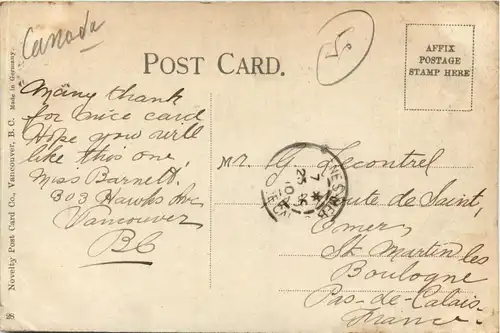 Canada
POST CARD.
AFFIX
POSTAGE
STAMP HERE
Many thank
for nice card
Hope you will
like this one,
Miss Barnett.
303 Hawks Ave
Vancouver
BC
Mr. G. Lecontrel
Route de Saint,
Omer,
St Martin les
Boulogne
Pas-de-Calais
France.
Novelty Post Card Co., Vancouver, B. C. Made in Germany.
28